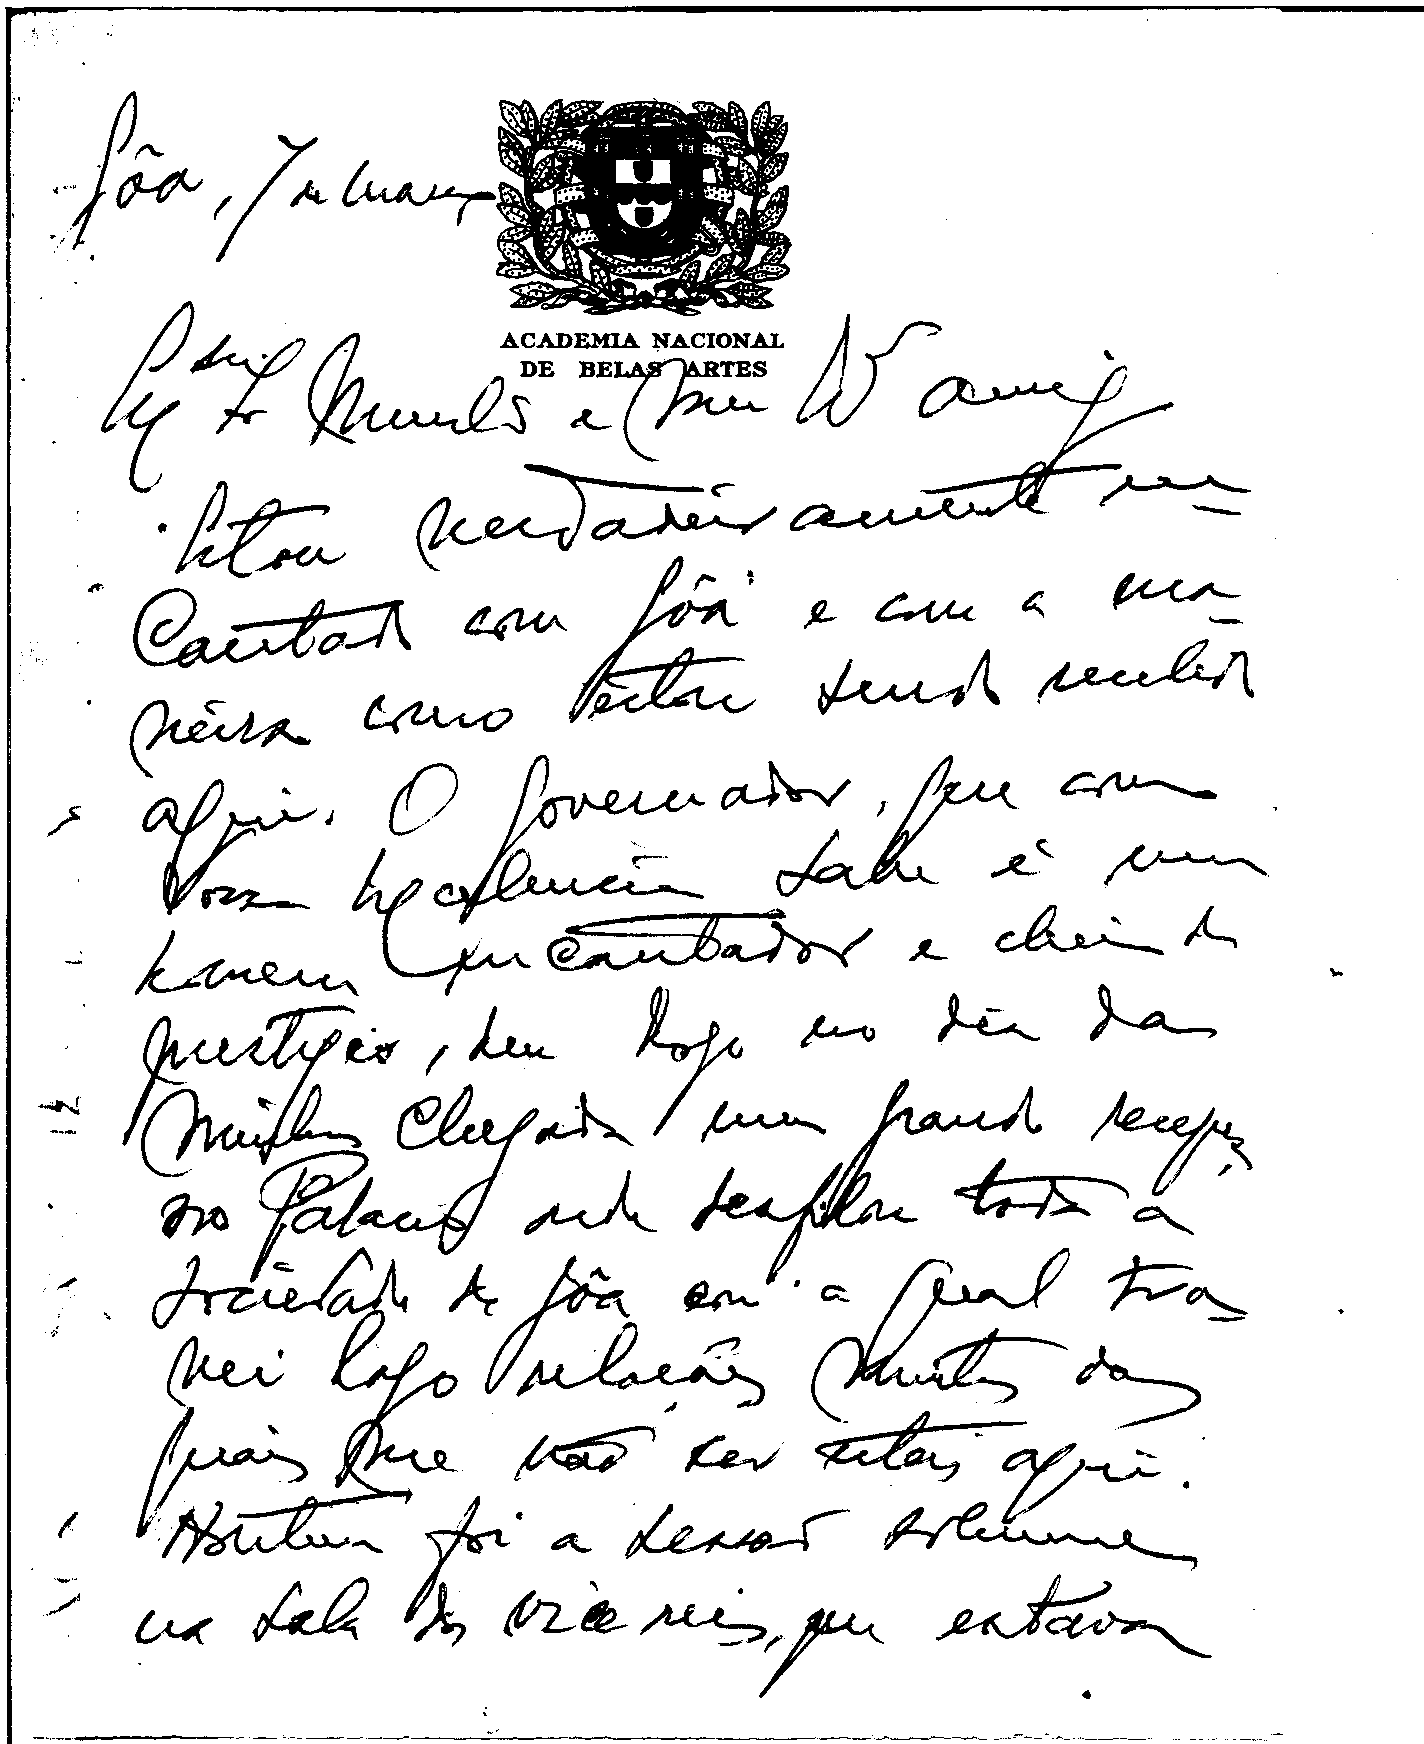 Gôa, 7 de Março
ACADEMIA NACIONAL
DE BELAS ARTES
Sr Ministro e meu amigo
Estou verdadeiramente en-
cantado com Gôa e com a ma-
neira como estou sendo recebido
aqui. O Governador, que como
Vossa Excelencia sabe é um
homem encantador e cheio de
prestigio, deu logo no dia da
minha chegada uma grande recepção
no Palacio onde desfilou toda a
sociedade de Gôa com a qual tra-
vei logo relações muitas das
quais me vão ser uteis aqui.
Hontem foi a sessão solemne
na sala dos vice reis, que estava